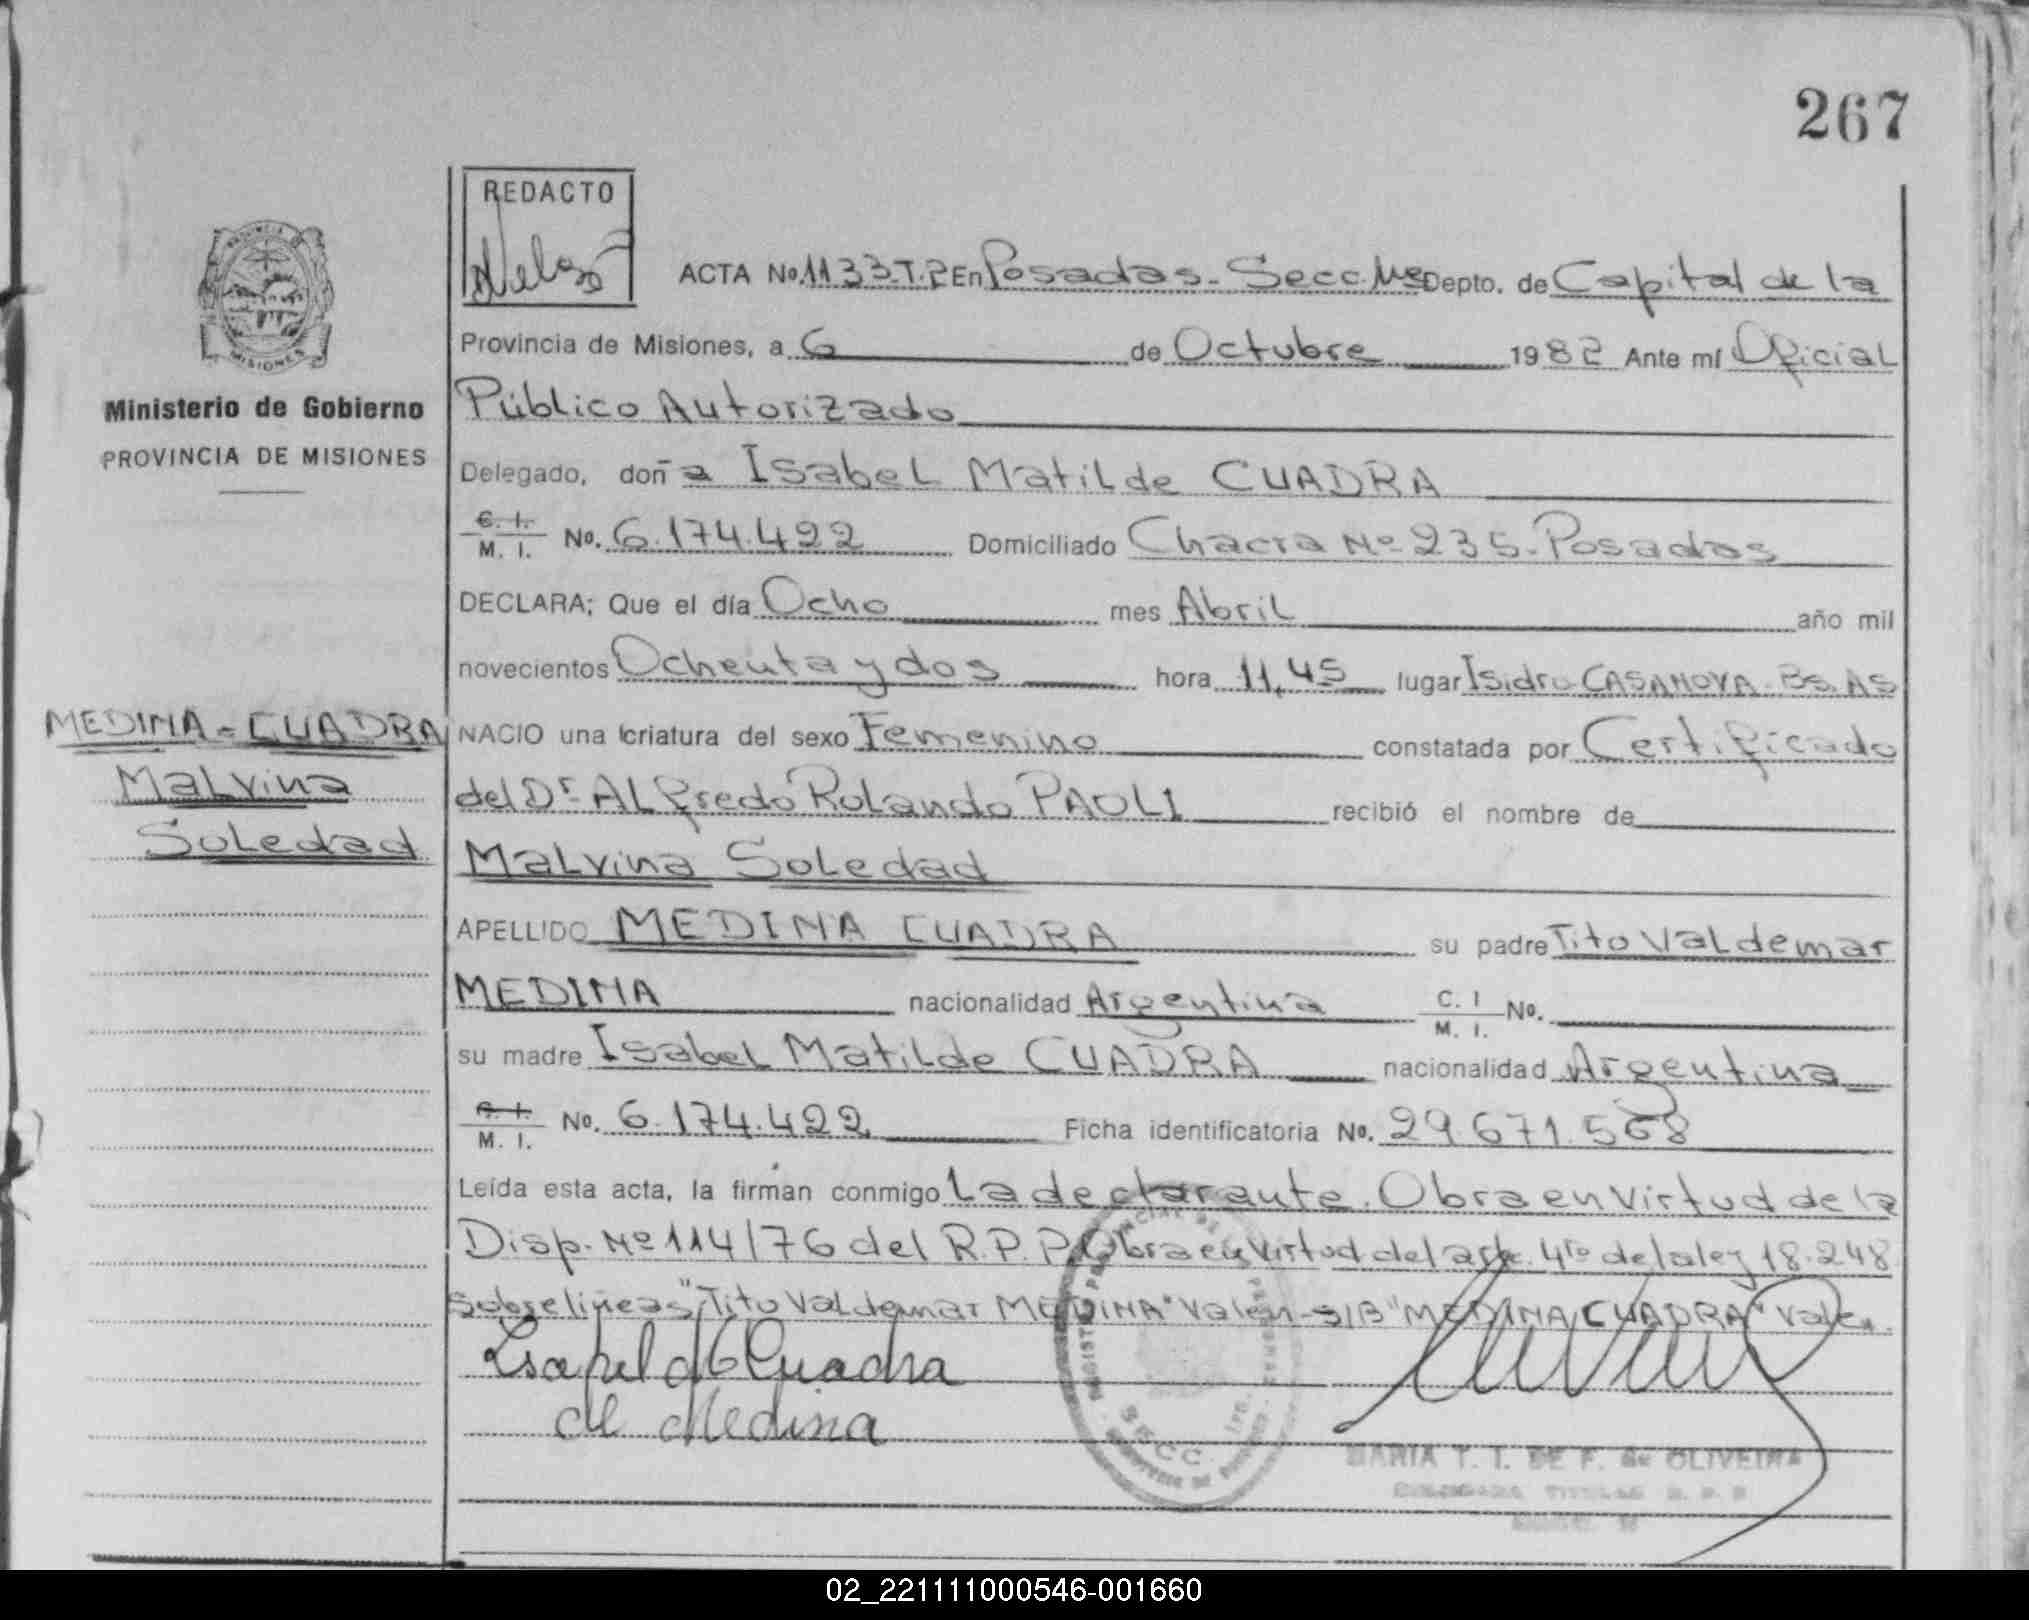 267
REDACTO
ACTA No. 1133-T.P. En Posadas - Secc. Depto. de Capital de la
Provincia de Misiones, a 6 de Octubre 1982 Ante mí Oficial
Ministerio de Gobierno
PROVINCIA DE MISIONES
Público Autorizado
Delegado, doña Isabel Matilde CUADRA
C. I. M. I. No. 6.174.422 Domiciliado Chacra Nº 235 - Posadas
DECLARA; Que el día Ocho mes Abril año mil
novecientos Ochenta y dos hora 11,45 lugar Isidro CASANOVA - Bs. As
MEDINA - CUADRA
Malvina
Soledad
NACIO una criatura del sexo Femenino constatada por Certificado
del Dr. Alfredo Rolando PAOLI recibió el nombre de
Malvina Soledad
APELLIDO MEDINA CUADRA su padre Tito Valdemar
MEDINA nacionalidad Argentina C. I M. I. No.
su madre Isabel Matilde CUADRA nacionalidad Argentina
C. I. M. I. No. 6.174.422 Ficha identificatoria No. 29.671.568
Leída esta acta, la firman conmigo La declarante. Obra en virtud de la
Disp. Nº 114/76 del R.P.P. Obra en virtud del art. 4to de la ley 18.248
Sobre lineas "Tito Valdemar MEDINA" Valen - S/B "MEDINA CUADRA" Valen.
Isabel M Cuadra
de Medina
SECC.
MARIA T. I. DE F. de OLIVEIRA
02_221111000546-001660